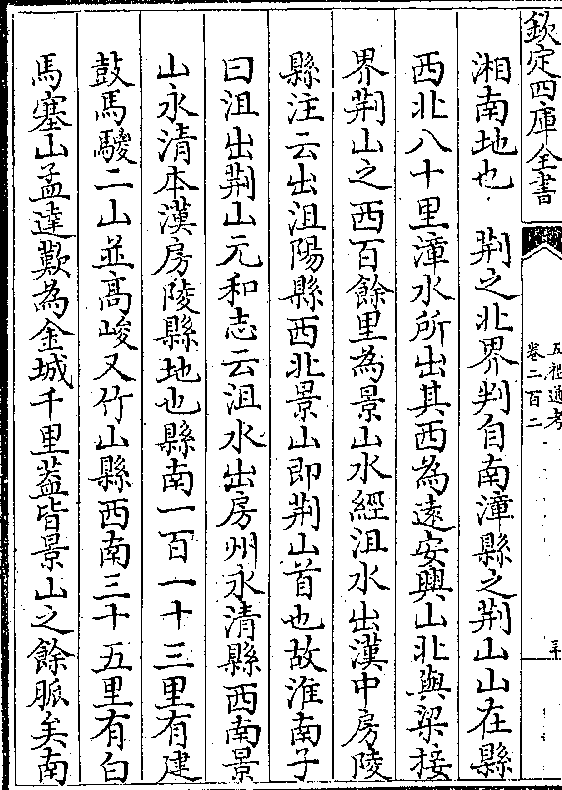 欽定四庫全書
五禮通考
卷二百二
湘南地也 荆之北界判自南漳縣之荆山山在縣
西北八十里漳水所出其西為遠安興山北與梁接
界荆山之西百餘里為景山水經沮水出漢中房陵
縣注云出沮陽縣西北景山即荆山首也故淮南子
曰沮出荆山元和志云沮水出房州永清縣西南景
山永清本漢房陵縣地也縣南一百一十三里有建
鼓馬騣二山並高峻又竹山縣西南三十五里有白
馬塞山孟達歎為金城千里葢皆景山之餘脈矣南